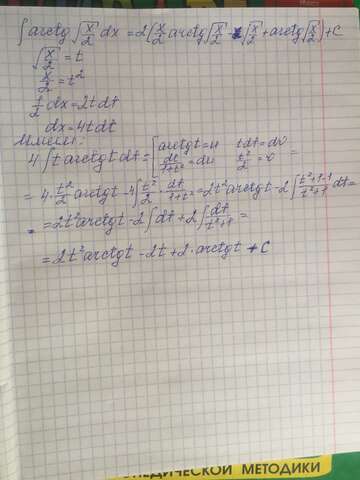 ∫ arctg √(x/2) dx = 2(x/2 arctg √(x/2) - √(x/2) + arctg √(x/2)) + C
√(x/2) = t
x/2 = t²
1/2 dx = 2t dt
dx = 4t dt
Имеем:
4 ∫ t arctg t dt = { arctg t = u  t dt = dv
dt/(1+t²) = du  t²/2 = v } =
= 4 · t²/2 arctg t - 4 ∫ t²/2 · dt/(1+t²) = 2t² arctg t - 2 ∫ (t²+1-1)/(t²+1) dt =
= 2t² arctg t - 2 ∫ dt + 2 ∫ dt/(t²+1) =
= 2t² arctg t - 2t + 2 · arctg t + C
ПЕДИЧЕСКОЙ МЕТОДИКИ